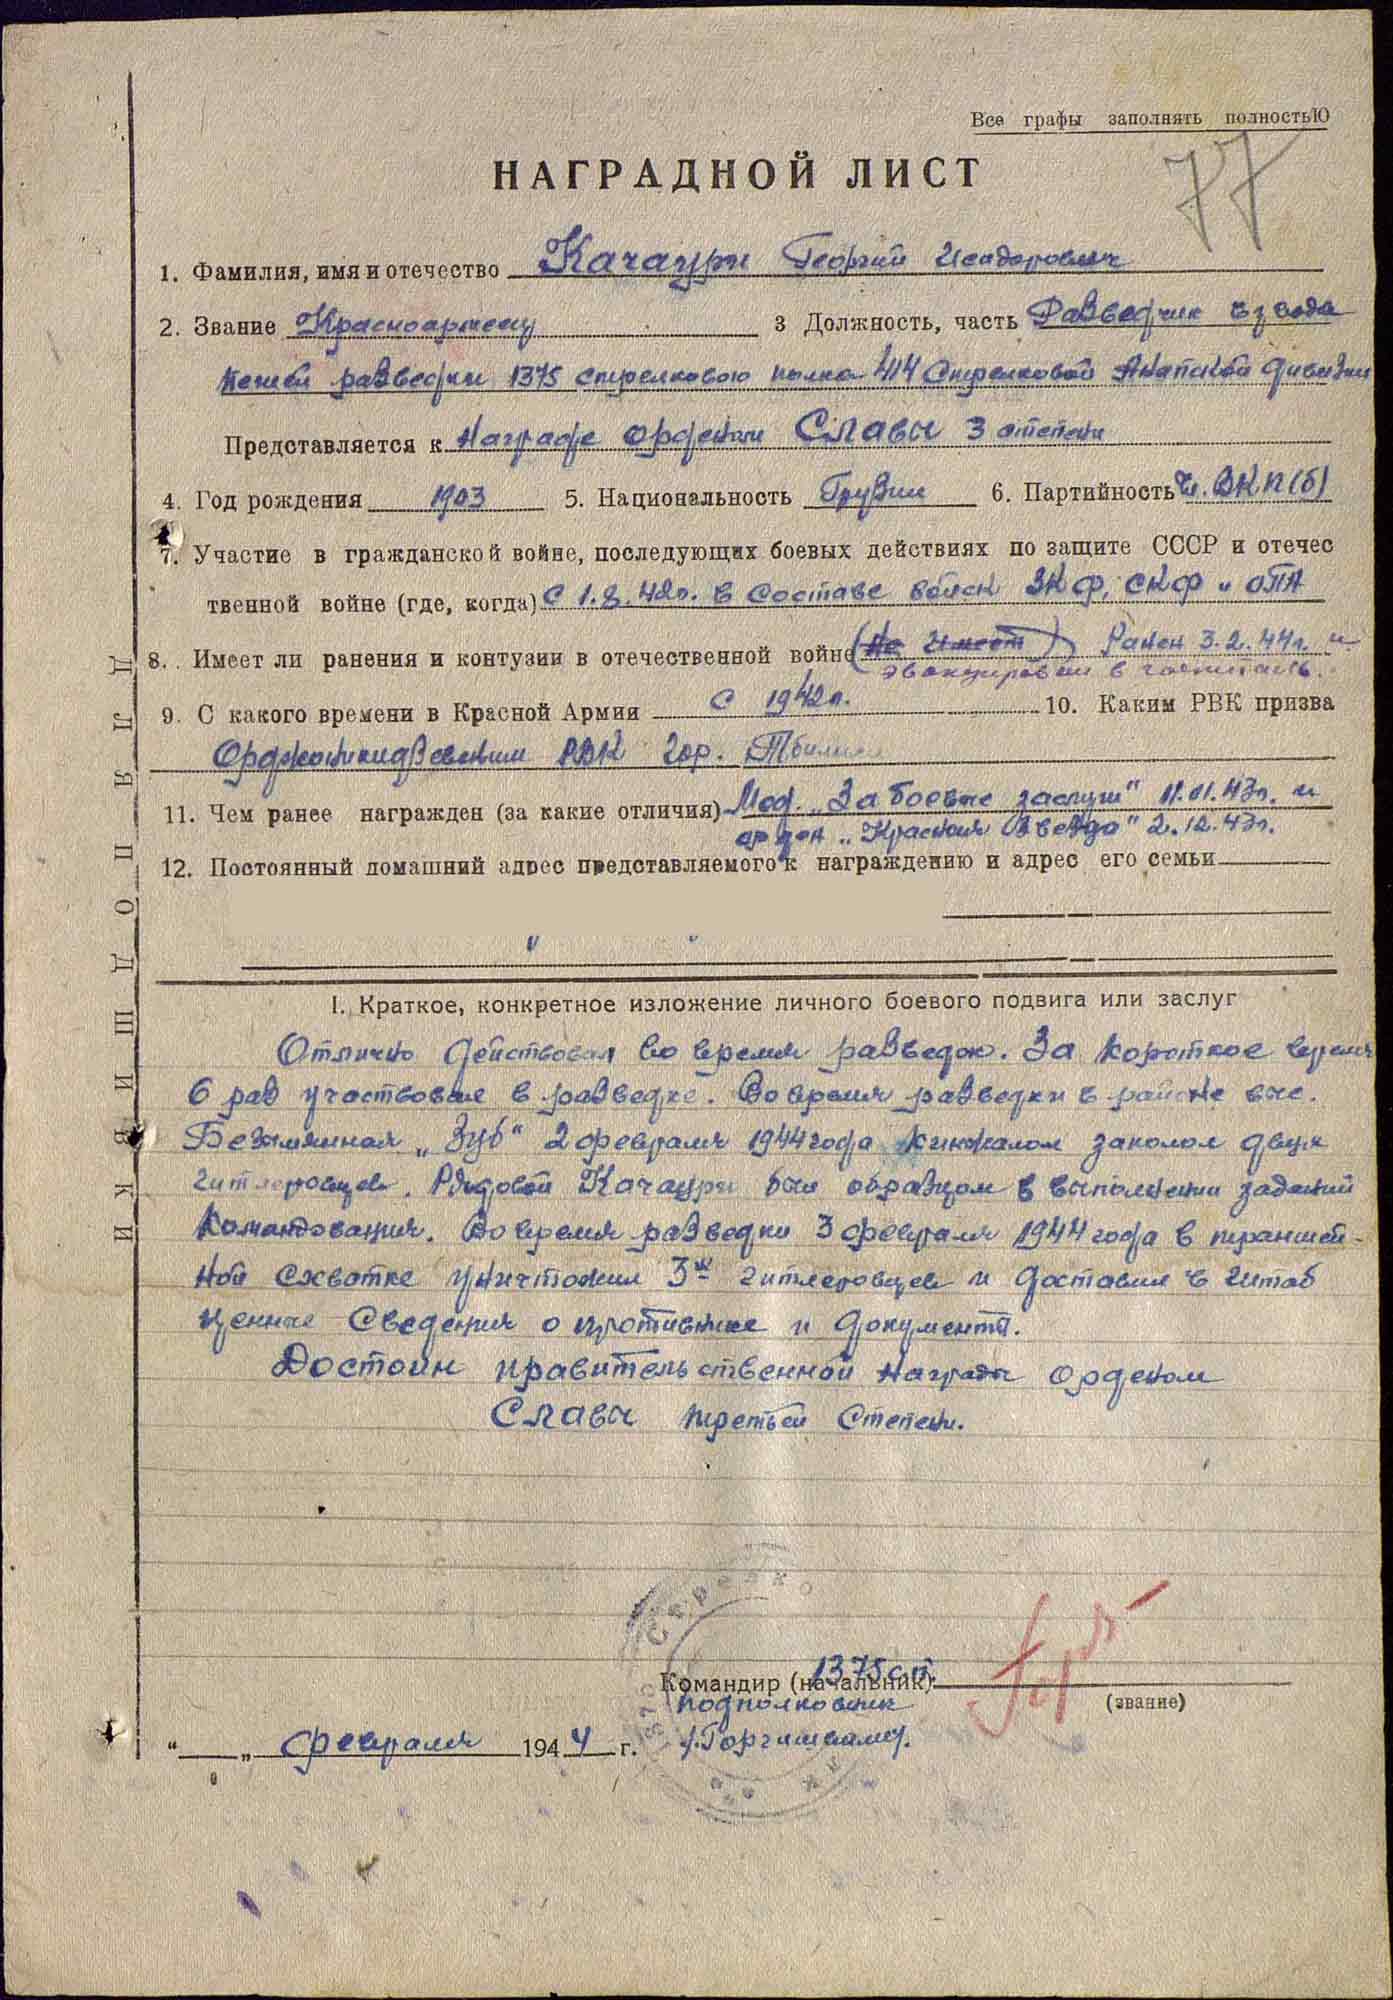 Все графы заполнять полностьЮ
77
НАГРАДНОЙ ЛИСТ
1. Фамилия, имя и отечество Качаури Георгий Исадорович
2. Звание Красноармеец 3 Должность, часть Разведчик взвода
пешей разведки 1375 стрелкового полка 414 Стрелковой Анапской дивизии
Представляется к Награде орденом Славы 3 степени
4. Год рождения 1903 5. Национальность Грузин 6. Партийность Чл. ВКП(б)
7. Участие в гражданской войне, последующих боевых действиях по защите СССР и отечес
твенной войне (где, когда) С 1.8.42г. в составе войск ЗКФ, СКФ и ОПА
8. Имеет ли ранения и контузии в отечественной войне (Не имеет) Ранен 3.2.44г. и
эвакуирован в госпиталь.
9. С какого времени в Красной Армии С 1942г. 10. Каким РВК призва
Орджоникидзевским РВК гор. Тбилиси
11. Чем ранее награжден (за какие отличия) Мед. „За боевые заслуги" 11.01.43г. и
орден „Красная Звезда" 2.12.43г.
12. Постоянный домашний адрес представляемого к награждению и адрес его семьи
ДЛЯ ПОДШИВКИ
I. Краткое, конкретное изложение личного боевого подвига или заслуг
Отлично действовал во время разведок. За короткое время
6 раз участвовал в разведке. Во время разведки в районе выс.
Безымянная „Зуб" 2 февраля 1944 года кинжалом заколол двух
гитлеровцев. Рядовой Качаури был образцом в выполнении заданий
командования. Во время разведки 3 февраля 1944 года в траншей-
ной схватке уничтожил 3х гитлеровцев и доставил в штаб
ценные сведения о противнике и документы.
Достоин правительственной награды орденом
Славы третьей степени.
Командир (начальник) 1375 с.п.
подполковник
(звание)
„ " февраля 1944 г. /Горгишвили/.